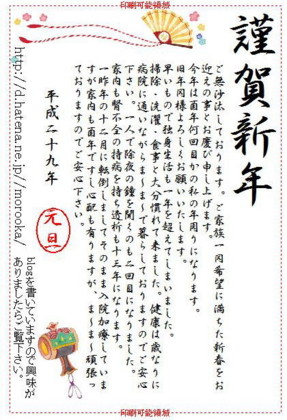 印刷可能領域
謹賀新年
ご無沙汰しております。ご家族一同希望に満ちた新春をお
迎えの事とお慶び申し上げます。
今年は酉年何回目かの私の年周りになります。
旧年同様よろしくお願いいたします。
早いもので独身生活も一年を超えてしまいました。
掃除・洗濯・食事と大分慣れて来ました。健康は歳なりに
病院に通いながらま～ま～で暮らしておりますのでご安心
下さい。一人で除夜の鐘を聞くのも二回目になりました。
家内も腎不全の持病を持ち透析も十三年になります。
一昨年の十二月に転倒しましてそのまま入院加療していま
すが家内も酉年ですし心配も有りますが、ま～ま～頑張っ
ておりますのでご安心下さい。
平成二十九年
元旦
http://d.hatena.ne.jp/morooka/
blogを書いていますので興味が
ありましたらご覧下さい。
印刷可能領域